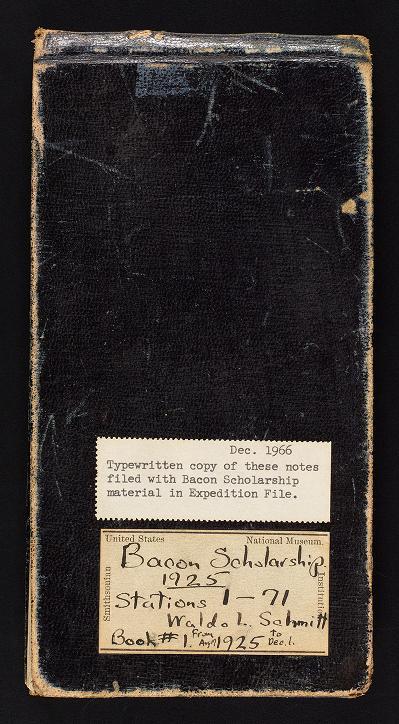 Dec. 1966
Typewritten copy of these notes
filed with Bacon Scholarship
material in Expedition File.
United States National Museum.
Smithsonian
Institution
Bacon Scholarship
1925
Stations 1-71
Waldo L. Schmitt
Book # 1. From 1925 to Dec. 1.